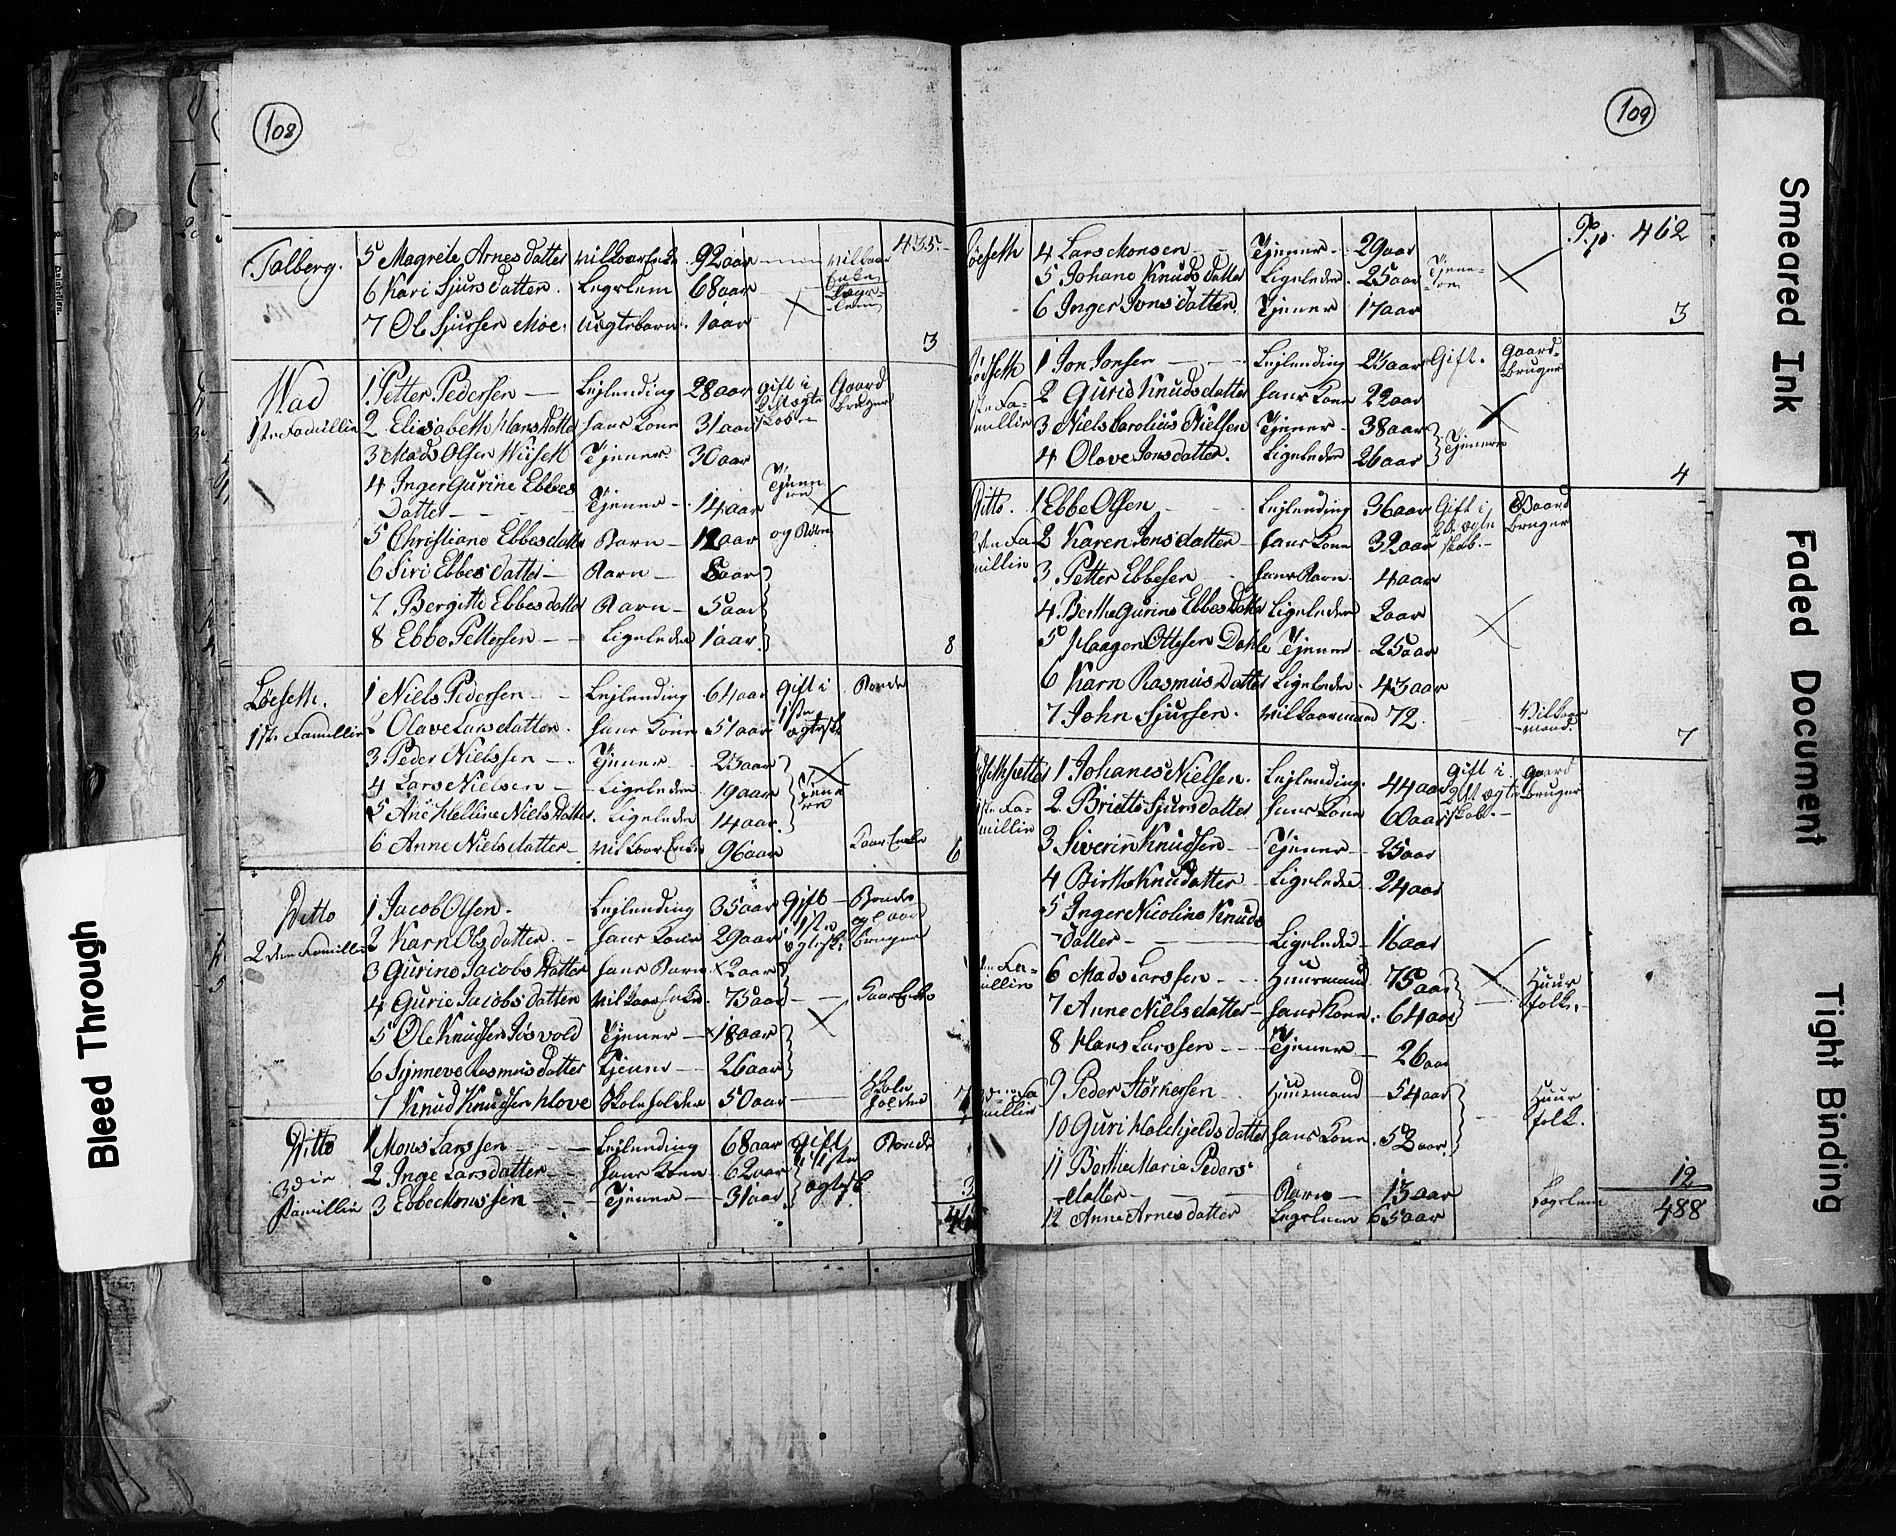 108
435
Talberg. 5 Magrete Arnes datter vilkaarEnke 92 aar vilkaar Enke
6 Kari Sjurs datter. Legslem 68 aar Legs-lem
7 Ole Sjursen Moe. Uegtebarn. 1 aar
3
Wad 1 Petter Pedersen Lejlending 28 aar gift i 1ste ægteskab Gaardbruger
1ste Famillie 2 Elisabeth Hansdatter hans Kone 31 aar
3 Mads Olsen Tjener 30 aar
4 Inger Gurine Ebbes
Datter Tjener 14 aar Tjenere
5 Christiane Ebbesdatter Barn 12 aar og Børn
6 Siri Ebbes datter Barn 8 aar
7 Bergitte Ebbesdatter Barn 5 aar
8 Ebbe Pettersen Ligeledes 1 aar
8
Løeseth. 1 Niels Pedersen Lejlending 64 aar Gift i 1ste ægtesk: Bonde
1ste Famillie 2 Olave Larsdatter. hans Kone 51 aar
3 Peder Nielssen Tjener 23 aar
4 Lars Nielsen Ligeledes 19 aar Tjenere
5 Ane Helline Niels datter. Ligeledes 14 aar
6 Anne Nielsdatter vilkaarEnke 96 aar KaarEnke 6
Ditto 1 Jacob Olsen. Lejlending 35 aar Gift 1ste ægtesk: Bonde og Gaardbruger
2den Famillie 2 Karn Olsdatter. hans Kone 29 aar
3 Gurine Jacobs datter hans Barn 2 aar
4 Gurie Jacobs datter vilkaarEnke 75 aar KaarEnke
5 Ole Knudsen Tjener 18 aar
6 Synneve Rasmus datter Tjener 26 aar
7 Knud Knudsen Hove Skoleholder 50 aar Skoleholder 7
Ditto 1 Mons Larssen Lejlending 68 aar gift i 1ste ægtesk Bonde
3die 2 Inge Larsdatter hans Kone 62 aar
Famillie 3 Ebbe Monssen Tjener 31 aar 3
46
109
Tp. 462
øeseth 4 Lars Monsen Tjener 29 aar
5 Johane Knuds datter Ligeledes 25 aar Tjenere
6 Inger Jons datter. Tjener 17 aar 3
ødseth 1 Jon Jonsen Lejlending 23 aar Gift. Gaardbruger
1ste Fa- 2 Gurie Knuds datter hans Kone 22 aar
millie 3 Niels Carolius Nielsen Tjener 38 aar
4 Olave Jonsdatter. Ligeledes 26 aar Tjenere
4
Ditto. 1 Ebbe Olsen Lejlending 36 aar Gift i 2det ægteskab. Gaardbruger
2den Fa- 2 Karen Jons datter hans Kone 32 aar
millie 3 Petter Ebbesen hans Barn 4 aar
4 Berthe Gurine Ebbesdatter Ligeledes 2 aar
5 Haagen Ottesen Dahle Tjener 25 aar
6 Karn Rasmus datter Ligeledes 43 aar
7 John Sjursen. vilkaarmand 72. Vilkaarmand.
7
1 Johanes Nielsen. Lejlending. 44 aar gift i 2det ægteskab. Gaardbruger
1ste Fa- 2 Britte Sjursdatter hans Kone 60 aar
millie
3 Siverin Knudsen Tjener 25 aar
4 Birthe Knudatter Ligeledes 24 aar
5 Inger Nicoline Knuds
-datter Ligeledes 16 aar
den Fa-
millie 6 Mads Larssen Huusmand 75 aar Huusfolk.
7 Anne Nielsdatter hans Kone. 64 aar
8 Hans Larssen Tjener 26 aar
3die Fa
millie 9 Peder Størkersen Huusmand 54 aar Huusfolk.
10 Guri Holchjelds datter hans Kone. 52 aar.
11 Berthe Marie Peders
-datter Barn 13 aar 12
12 Anne Arnes datter Legslem 65 aar Legslem 488
Bleed Through
Smeared Ink
Faded Document
Tight Binding